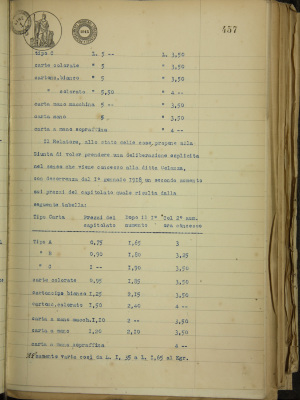 457
tipo C L. 3 -- L. 3,50
carta colorate " 3 " 3,50
cartonc.bianco " 5 " 3,50
" colorato " 5,50 " 4 --
carta mano macchina 5 -- " 3,50
carta mano " 3,50
carta a mano sopraffina " 4 --
Il Relatore, allo stato delle cose, propone alla
Giunta di voler prendere una deliberazione esplicita
nel senso che viene concesso alla ditta
con decorrenza dal 1° gennaio 1918, un secondo aumento
sui prezzi del capitolato quale risulta dalla
seguente tabella:
Tipo Carta Prezzi del Dopo il I° Del 2° aum.
capitolato aumento ora concesso
Tipo A 0,75 1,65 3
" B 0,90 1,80 3,25
" C 1 -- 1,90 3,50
carta colorate 0,95 1,85 3,50
cartoncino bianco 1,25 2,15 3,50
carton.colorato 1,50 2,40 4 --
carta a mano macch. 1,10 2 -- 3,50
carta a mano 1,20 2,10 3,50
carta a mano sopraffina 4 --